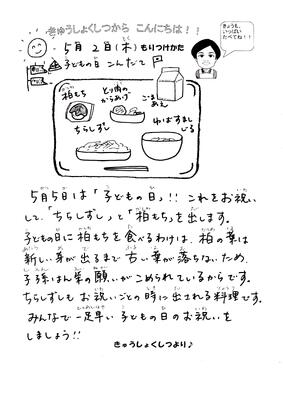 きゅうしょくしつから こんにちは！！
きょうも、
いっぱい
たべてね！！
5月2日(木)もりつけかた
子どもの日 こんだて
柏もち
とり肉の
からあげ
ごま
あえ
ちらしずし
ゆばすまし
じる
5月5日は「子どもの日」!! これをお祝い
して、「ちらしずし」と「柏もち」を出します。
子どもの日に柏もちを食べるわけは、柏の葉は
新しい芽が出るまで古い葉が落ちないため、
子孫はん栄の願いがこめられているからです。
ちらしずしもお祝いごとの時に出される料理です。
みんなで一足早い子どもの日のお祝いを
しましょう!!
きゅうしょくしつより♪